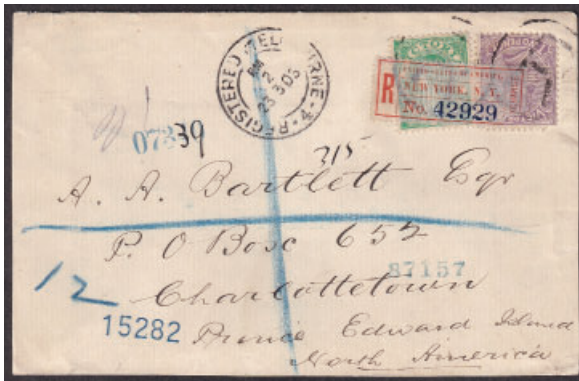 REGISTERED MELBOURNE
2
23 3 05
R
NEW YORK, N. Y.
No. 42929
07839
315
A. A. Bartlett Esqr
P. O Box 652
87157
12
Charlottetown
15282
Prince Edward Island
North America